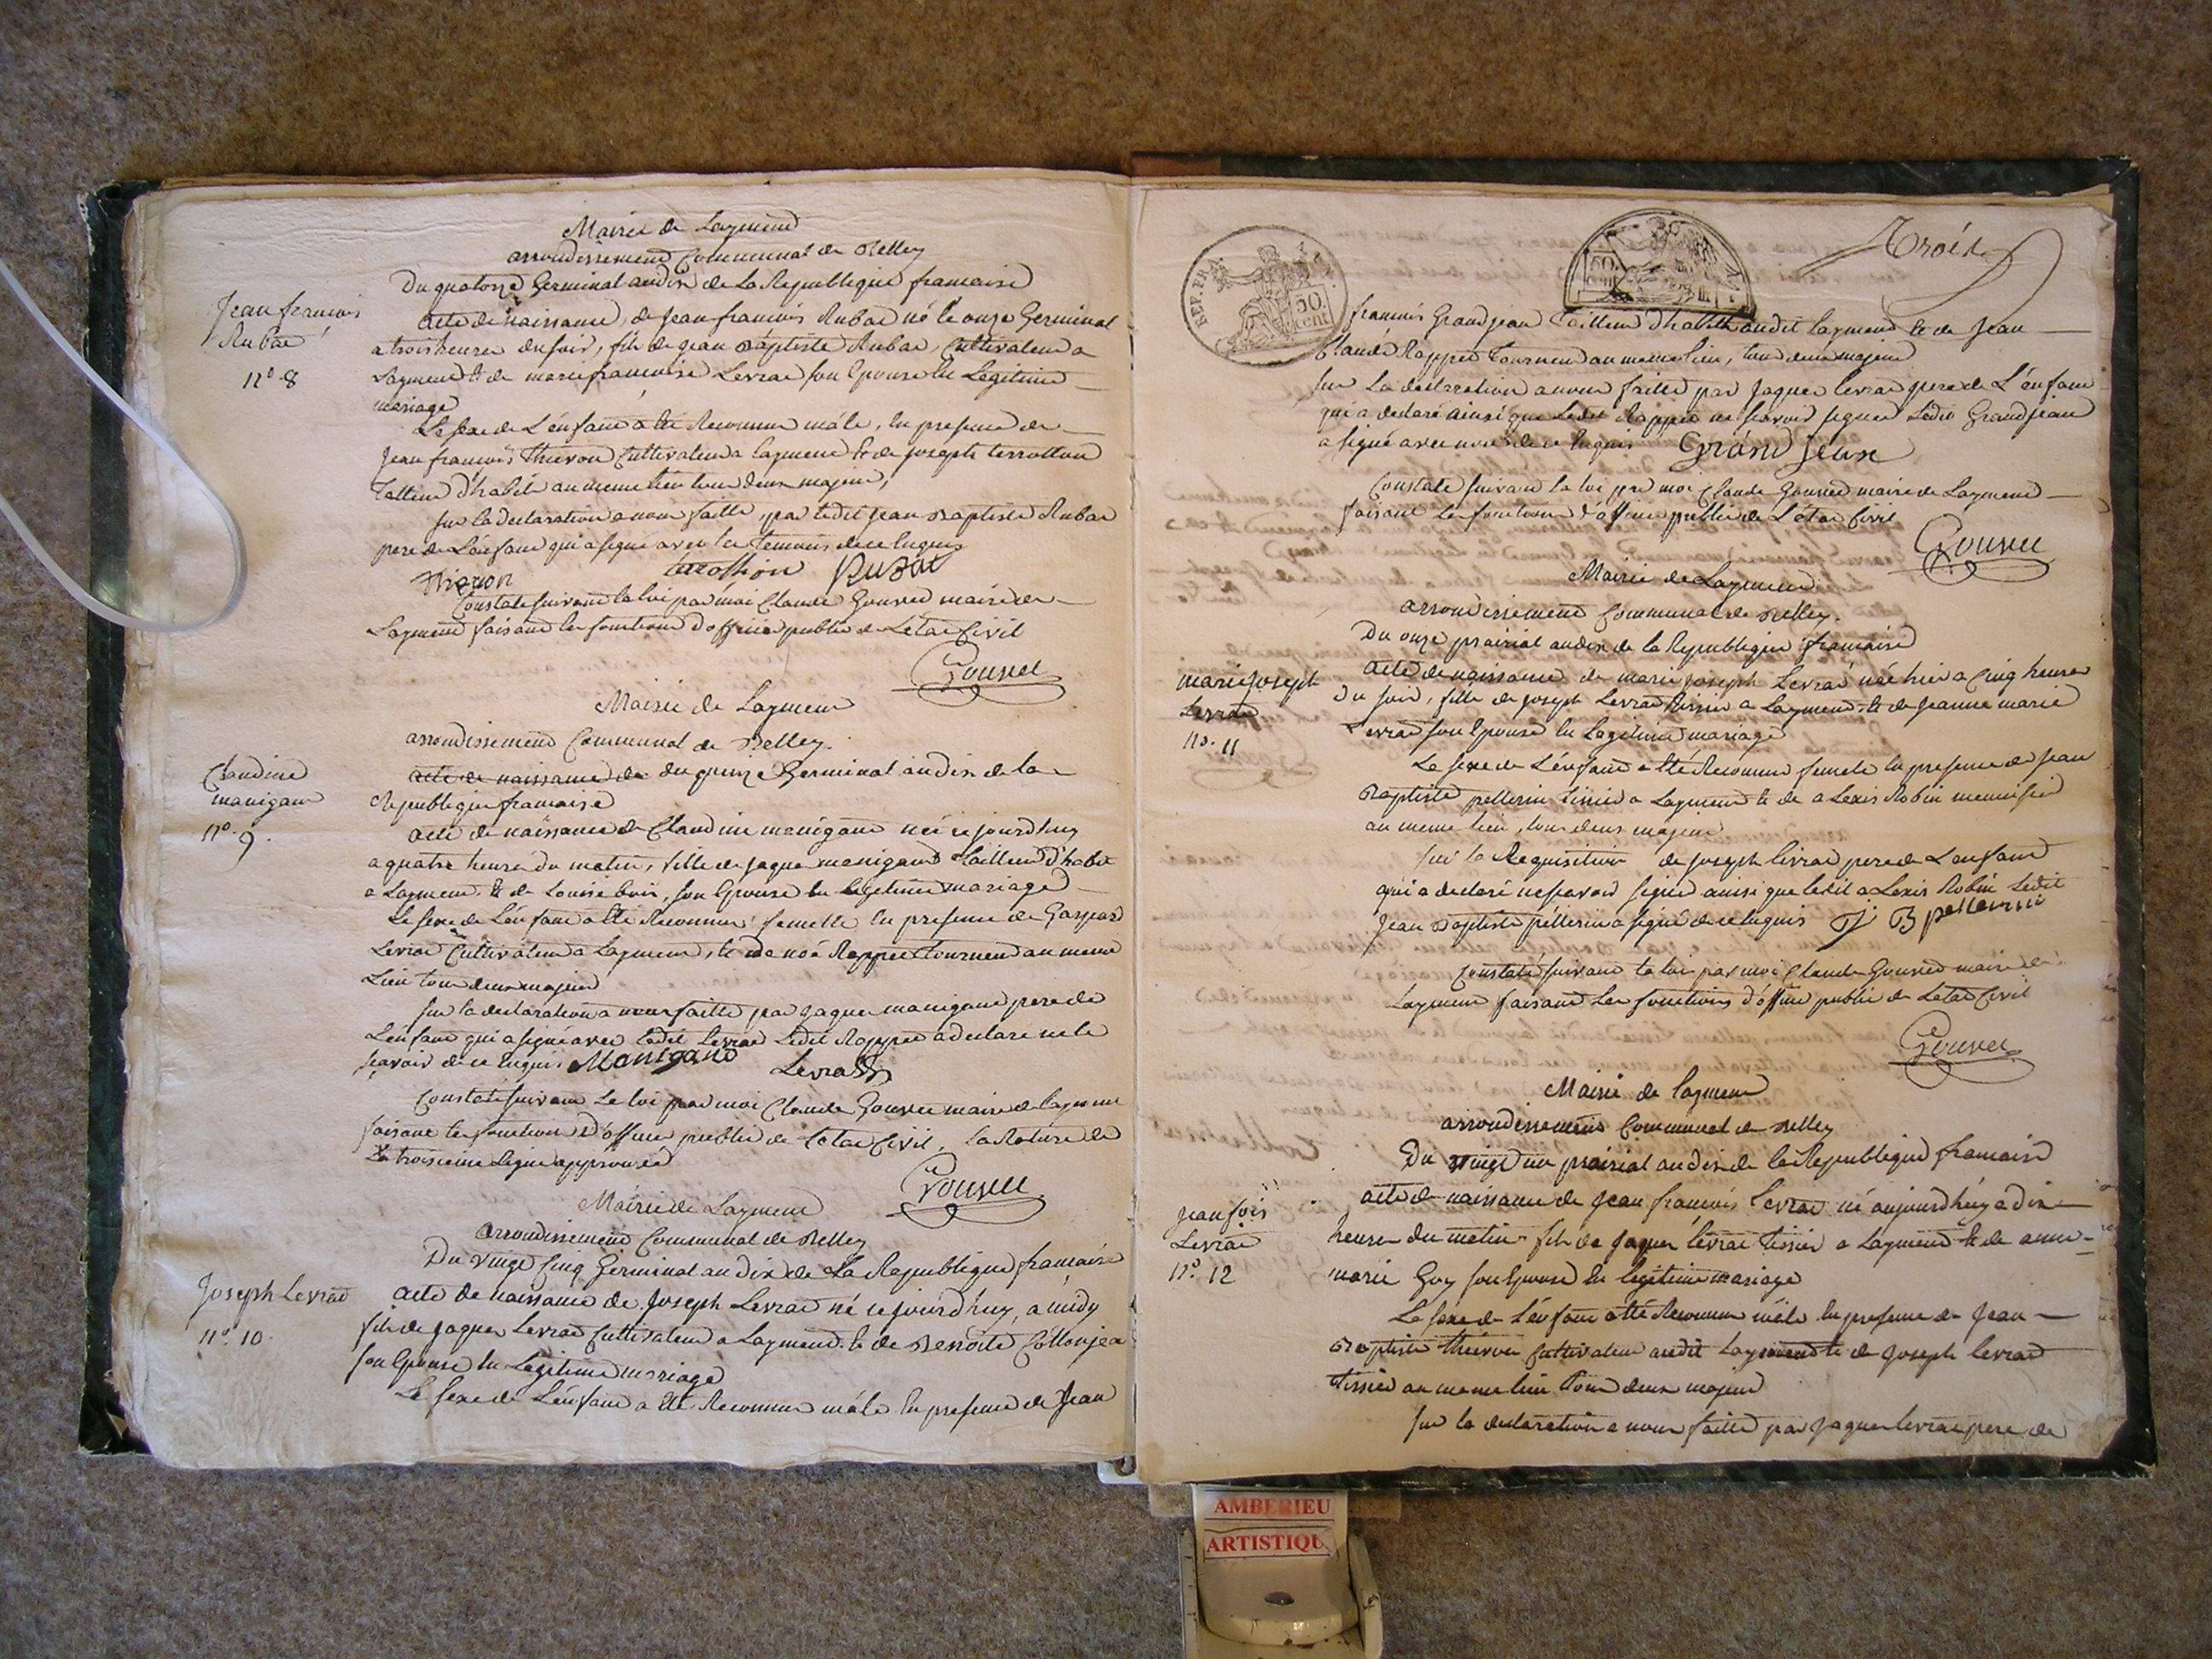 Mairie de Laymend
arrondissement Communal de Belley
Du quatorze Germinal an dix de La Republique francaise
Jean francois
Rubat
n.o 8
acte de naissance, de Jean francois Rubat né le onze Germinal
a trois heures du soir, fils de jean Baptiste Rubat, Cultivateur a
Laymend & de marie francoise Levrat son Epouse En Legitime
mariage
Le sexe de L'enfant a Eté Reconnu mâle, En presence de
Jean francois Thievon Cultivateur a laymend & de joseph terrollion
Tailleur d'habits au meme lieu tous deux majeurs,
sur la declaration a nous faitte, par ledit Jean Baptiste Rubat
pere de L'enfant qui a signé avec les temoins de ce Enquis
Rubat
Constaté suivant la loi par moi Claude Gouvet maire de
Laymend faisant les fonctions d'officier public de L'état Civil
Gouvet
Mairie de Laymend
arrondissement Communal de Belley.
Claudine
manigand
n.o 9.
acte de naissance de du quinze Germinal an dix de la
Republique francaise
acte de naissance de Claudine manigand née cejourdhuy
a quatre heures du matin, fille de jaques manigand tailleur d'habit
a Laymend, & de Louise bois, son Epouse En legitime mariage
Le sexe de L'enfant a Eté Reconnu femelle En presence de Gaspard
Levrat Cultivateur a Laymend, & de noé Rappet tourneur au meme
Lieu tous deux majeurs
sur la declaration a nous faitte par jaques manigand pere de
L'enfant qui a signé avec Ledit Levrat Ledit Rappet a declaré ne le
sçavoir de ce Enquis Manigand Levrat
Constaté suivant la loi par moi Claude Gouvet maire de laymend
faisant les fonctions d'officier public de l'état Civil, la Rature de
La troisieme Ligne approuvée
Gouvet
Mairie de Laymend
arrondissement Communal de Belley
Du vingt Cinq Germinal an dix de La Republique francaise
Joseph Levrat
n.o 10.
acte de naissance de Joseph Levrat né cejourd'huy, a midy
fils de jaques Levrat Cultivateur a Laymend & de Benoite Collonjea
son Epouse En Legitime mariage
Le sexe de L'enfant a Eté Reconnu mâle En presence de Jean
REP. FRA.
50. cent
50. cent
Trois
francois Grandjean Tailleur d'habits audit laymend & de Jean
Claude Rappet Tourneur au meme lieu, tous deux majeurs
sur La declaration a nous faitte par jaques levrat pere de L'enfant
qui a declaré ainsi que Ledit Rappet ne sçavoir signer Ledit Grandjean
a signé avec nous de ce Enquis Grand Jean
Constaté suivant la loi par moi Claude Gouvet maire de Laymend
faisant les fonctions d'officier public de L'état Civil
Gouvet
Mairie de Laymend
arrondissement Communal de Belley.
Du onze prairial an dix de la Republique francaise
marie joseph
Levrat
n.o 11
acte de naissance de marie joseph Levrat née hier a Cinq heures
Du soir, fille de joseph Levrat tissier a Laymend & de Jeanne marie
Levrat son Epouse En Legitime mariage
Le sexe de L'enfant a Eté Reconnu femele En presence de Jean
Baptiste pellerin tissier a Laymend & de aLexis Robin menuisier
au meme lieu, tous deux majeurs
sur la Requisition de joseph levrat pere de L'enfant
qui a declaré ne sçavoir signer ainsi que ledit aLexis Robin Ledit
Jean Baptiste pellerin a signé de ce Enquis J B pellerin
Constaté suivant la loi par moi Claude Gouvet maire de
Laymend faisant les fonctions d'officier public de Létat Civil
Gouvet
Mairie de laymend
arrondissement Communal de Belley
Du vingt un prairial an dix de la Republique francaise
Jean fois
Levrat
n.o 12
acte de naissance de Jean francois Levrat né aujourd'huy a dix
heures du matin fils de Jaques levrat tissier a Laymend & de anne
marie Goy son Epouse En legitime mariage
Le sexe de L'enfant a Eté Reconnu mâle En presence de Jean
Baptiste thievon Cultivateur audit Laymend & de joseph levrat
tissier au meme lieu Tous deux majeurs
sur la declaration a nous faitte par Jaques levrat pere de
AMBERIEU
ARTISTIQU